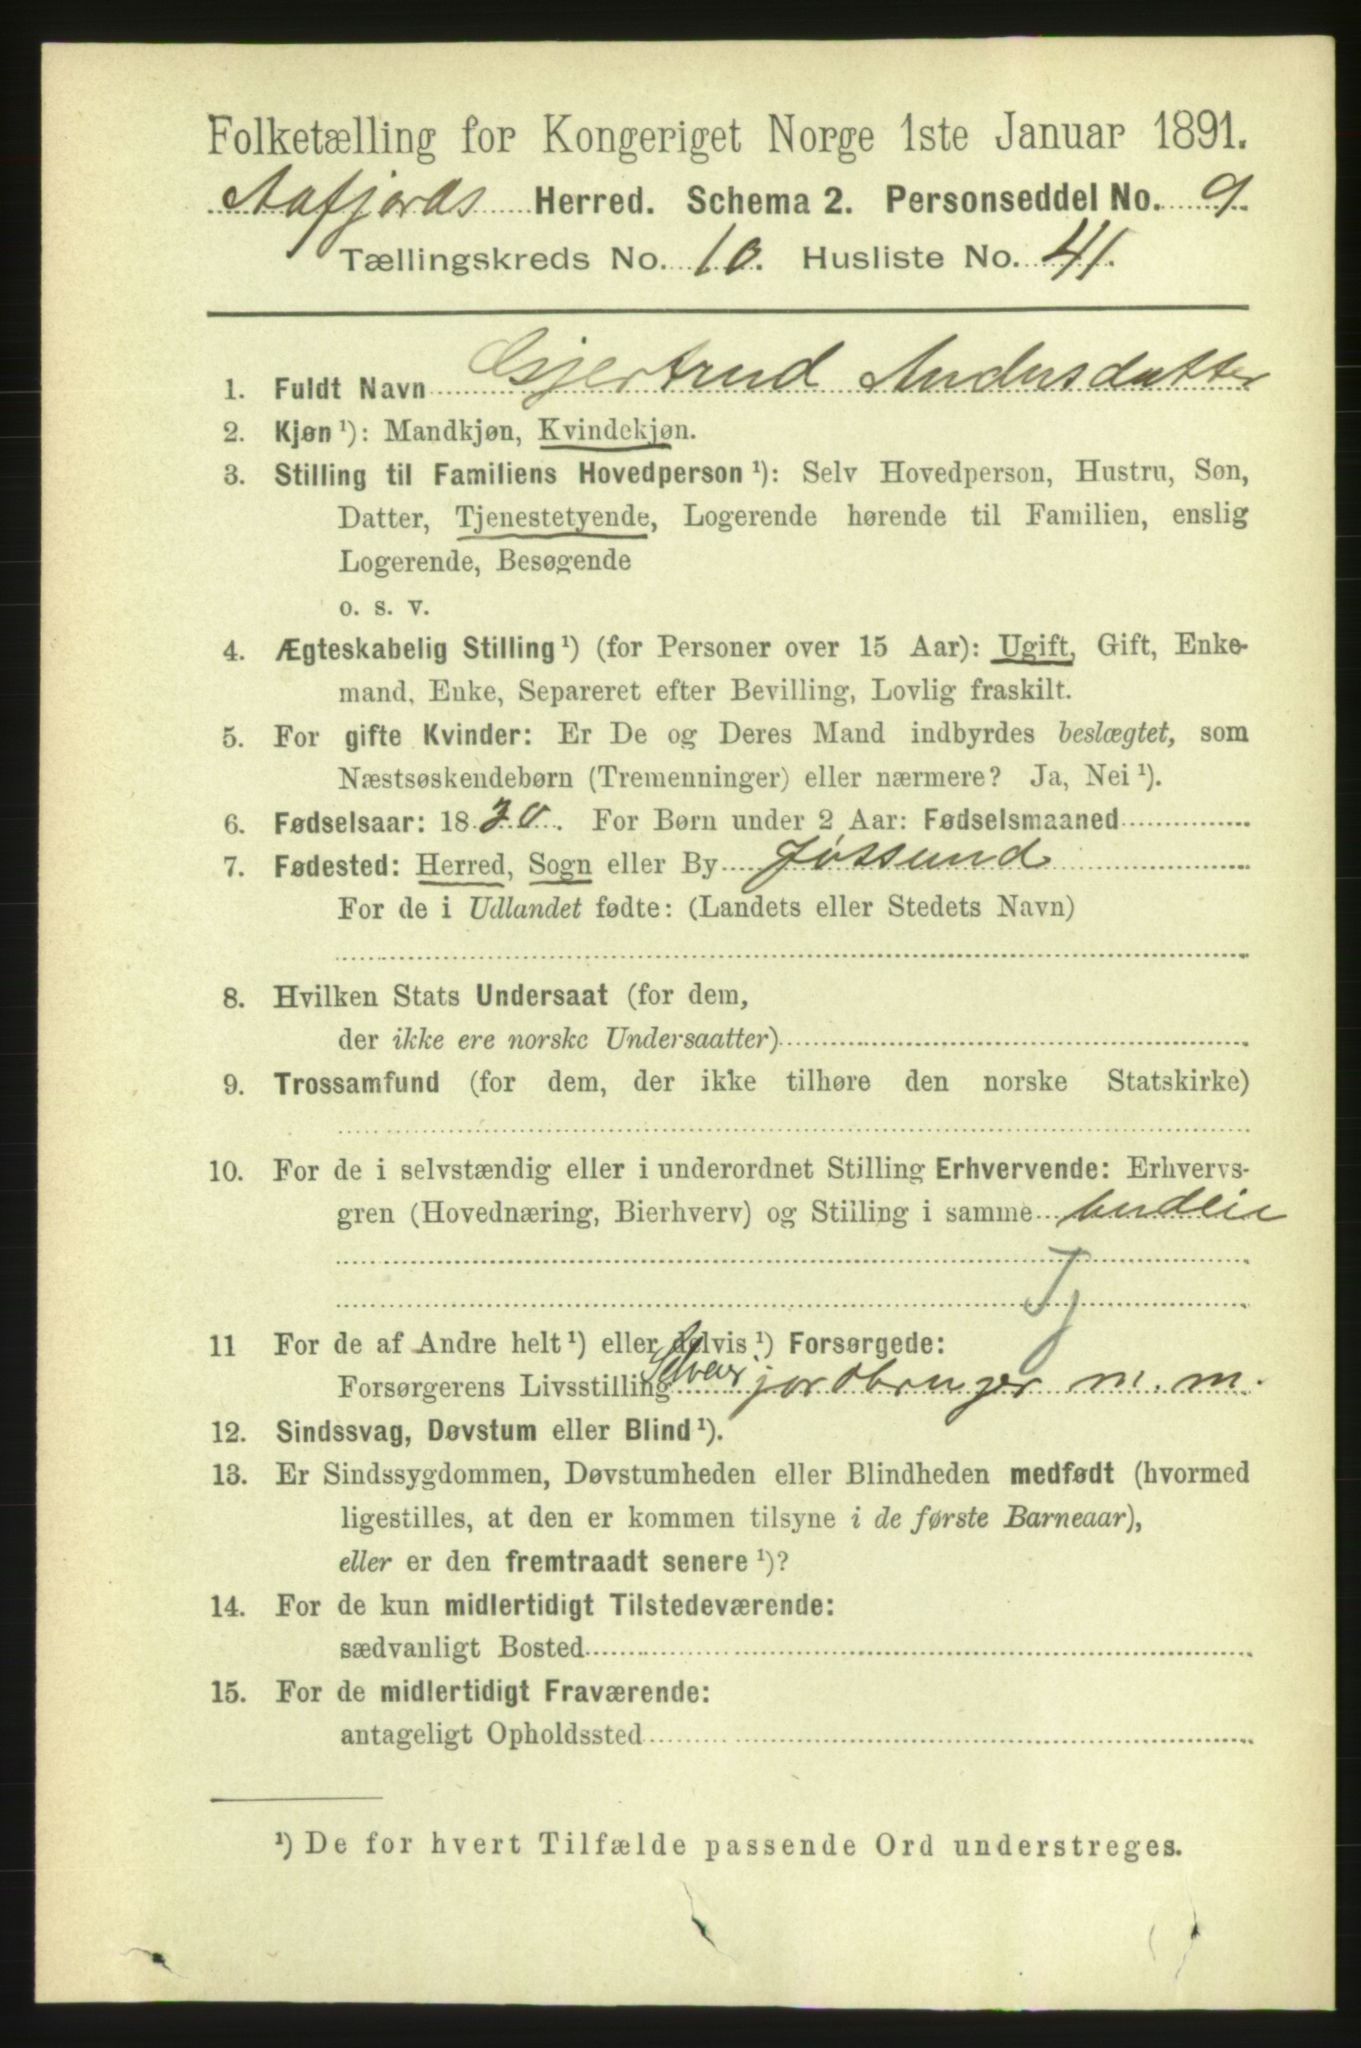 Folketælling for Kongeriget Norge 1ste Januar 1891.
Aafjords Herred. Schema 2. Personseddel No. 9.
Tællingskreds No. 10. Husliste No. 41.
1. Fuldt Navn Gjertrud Andersdatter
2. Kjøn ¹): Mandkjøn, Kvindekjøn.
3. Stilling til Familiens Hovedperson ¹): Selv Hovedperson, Hustru, Søn,
Datter, Tjenestetyende, Logerende hørende til Familien, enslig
Logerende, Besøgende
o. s. v.
4. Ægteskabelig Stilling ¹) (for Personer over 15 Aar): Ugift, Gift, Enke-
mand, Enke, Separeret efter Bevilling, Lovlig fraskilt.
5. For gifte Kvinder: Er De og Deres Mand indbyrdes beslægtet, som
Næstsøskendebørn (Tremenninger) eller nærmere? Ja, Nei ¹).
6. Fødselsaar: 1830. For Børn under 2 Aar: Fødselsmaaned
7. Fødested: Herred, Sogn eller By Jøssund
For de i Udlandet fødte: (Landets eller Stedets Navn)
8. Hvilken Stats Undersaat (for dem,
der ikke ere norske Undersaatter)
9. Trossamfund (for dem, der ikke tilhøre den norske Statskirke)
10. For de i selvstændig eller i underordnet Stilling Erhvervende: Erhvervs-
gren (Hovednæring, Bierhverv) og Stilling i samme
Tj
11 For de af Andre helt ¹) eller delvis ¹) Forsørgede:
Forsørgerens Livsstilling Selveier jordbruger m. m.
12. Sindssvag, Døvstum eller Blind ¹).
13. Er Sindssygdommen, Døvstumheden eller Blindheden medfødt (hvormed
ligestilles, at den er kommen tilsyne i de første Barneaar),
eller er den fremtraadt senere ¹)?
14. For de kun midlertidigt Tilstedeværende:
sædvanligt Bosted
15. For de midlertidigt Fraværende:
antageligt Opholdssted
¹) De for hvert Tilfælde passende Ord understreges.